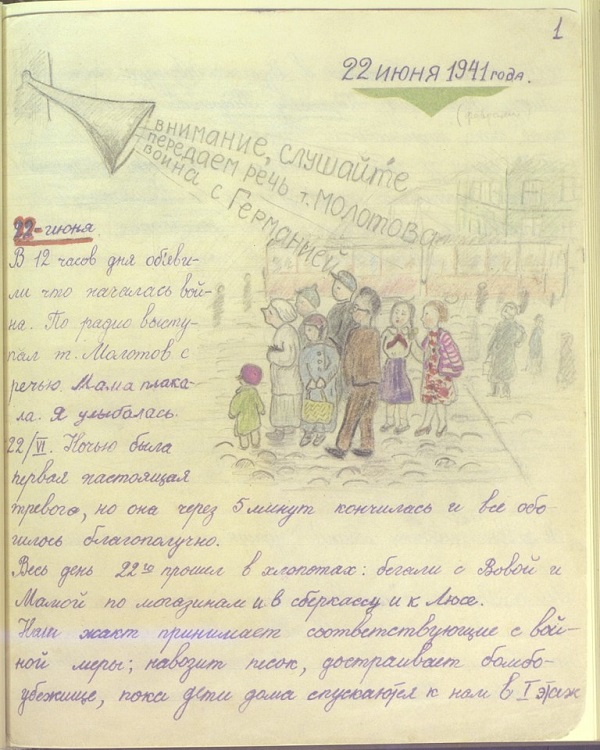 1
22 июня 1941 года.
внимание, слушайте
передаем речь т. Молотова
война с Германией
22-июня.
В 12 часов дня объяви-
ли что началась вой-
на. По радио высту-
пал т. Молотов с
речью. Мама плака-
ла. Я улыбалась.
22/VI. Ночью была
первая настоящая
тревога, но она через 5 минут кончилась и все обо-
шлось благополучно.
Весь день 22го прошел в хлопотах: бегали с Вовой и
Мамой по магазинам и в сберкассу и к Люсе.
Наш жакт принимает соответствующие с вой-
ной меры; навозит песок, достраивает бомбо-
убежище, пока дети дома спускаются к нам в I этаж